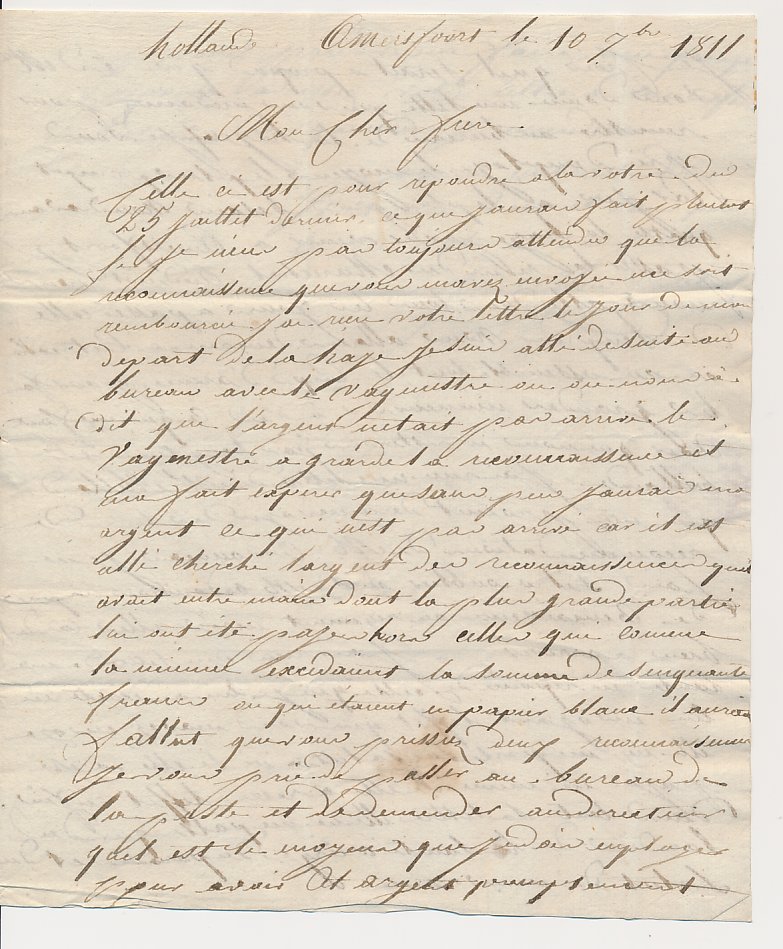 hollande Amersfoort le 10 7bre 1811
Mon Cher frere
Cette ci est pour repondre a la votre du
25 juillet dernier ce que jaurai fait plutot
si je neus pas toujours attendu que la
reconnaissence que vous mavez envoyée me soit
remboursée jai recu votre lettre le jour de mon
depart de la haje je suis allé de suite au
bureau avec le vagmestre ou on nous a
dit que l'argent netait pas arrivé le
vagmestre a garde la reconnaissance et
ma fait esperer que sans peu jaurai mon
argent ce qui nest pas arrivé car il est
allé cherché largent des reconnaissences quil
avait entre mains dont la plus grande partie
lui ont été payé hors celles qui comme
la mienne excedaient la somme de sinquante
francs ou qui étaient en papier blanc il aurait
fallut que vous prissiez deux reconnaissences
je vous prie de passer au bureau de
la poste et de demender au directeur
quel est le moyen que je dois employer
pour avoir cet argent promptement